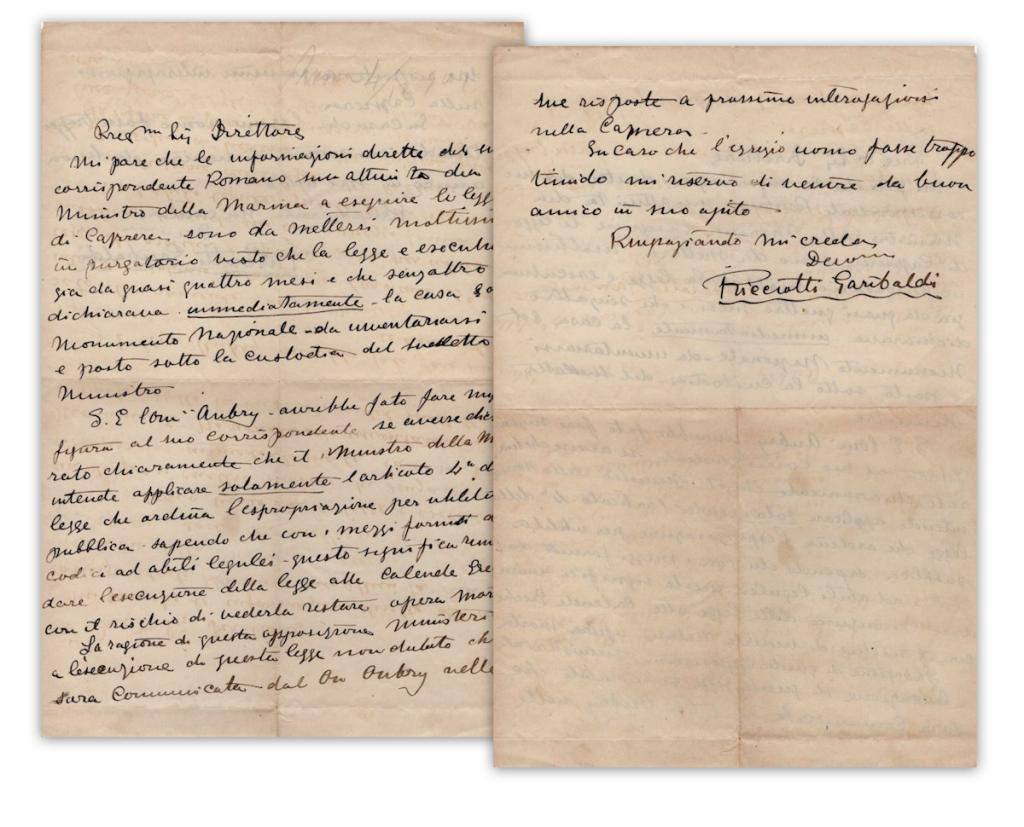 Preg.mo Sig Direttore
Mi pare che le informazioni dirette del su
corrispondente Romano sull' attività del
Ministro della Marina a eseguire la legg
di Caprera, sono da mettersi moltissi
in purgatorio visto che la legge e esecuti
gia da quasi quattro mesi e che senz'altro
dichiarava immediatamente - la casa
Monumento Nazionale - da inventariarsi
e posto sotto la custodia del suddetto
Ministro
S. E l'on Aubry - avrebbe fato fare mig
figura al suo corrispondente se avesse dich
rato chiaramente che il Ministro della M
intende applicare solamente l'articolo 4° d
legge che ordina l'espropriazione per utilità
pubblica - sapendo che con i mezzi forniti d
codici ad abili legulei - questo significa rim
dare l'esecuzione della legge alle Calende Gre
con il rischio di vederla restare opera mor
La ragione di questa opposizione ministeri
a l'esecuzione di questa legge non dubito ch
sara Comunicata dal On Aubry nelle
sue risposte a prossime interogazioni
sulla Caprera -
In caso che l'egregio uomo fosse troppo
timido mi riservo di venire da buon
amico in suo ajuto
Ringraziando mi creda
Devmo
Ricciotti Garibaldi